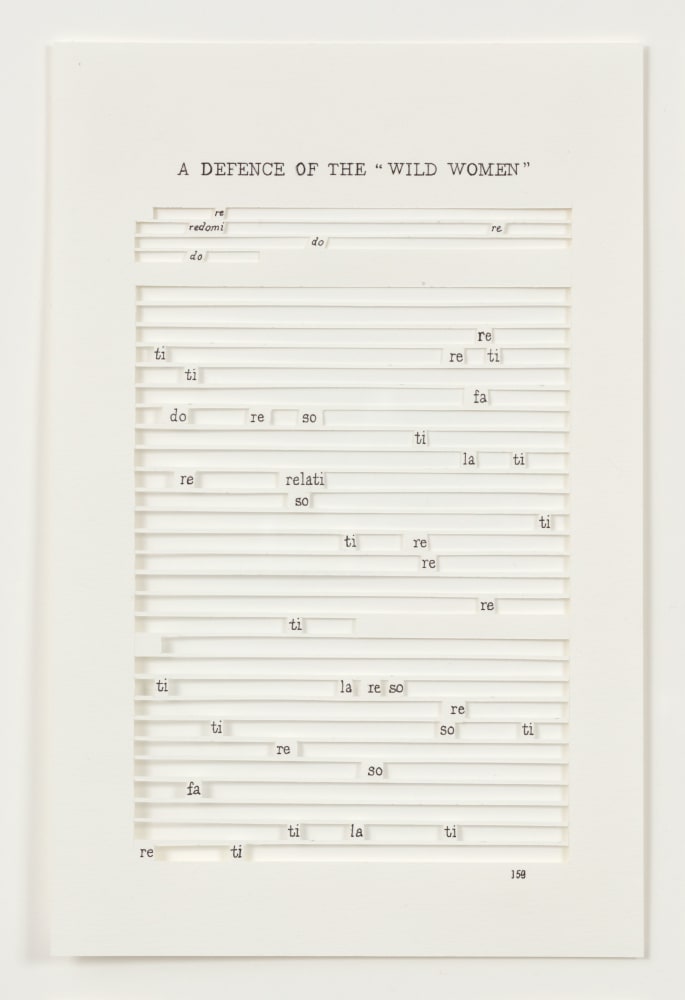 A DEFENCE OF THE “WILD WOMEN”
re
redomi re
do
do
re
ti re ti
ti
fa
do re so
ti
la ti
re relati
so
ti
ti re
re
re
ti
ti la re so
re
ti so ti
re
so
fa
ti la ti
re ti